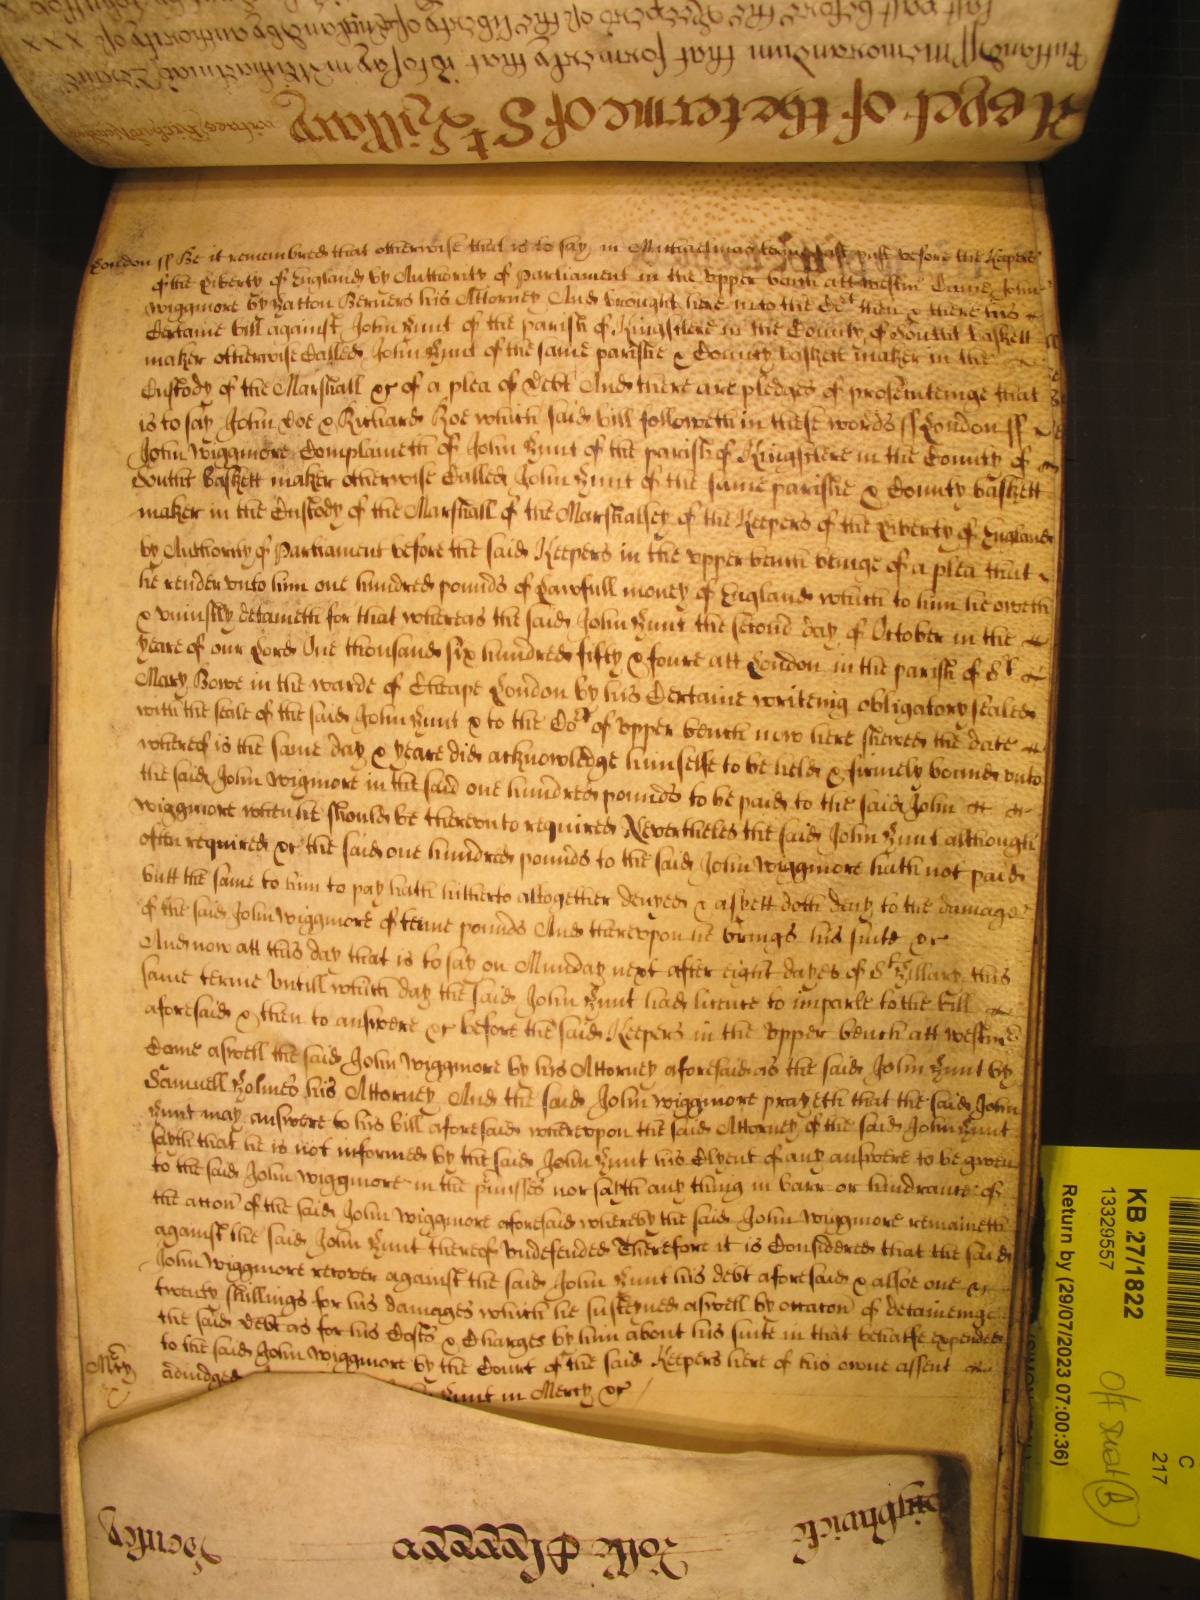 last past before the Keepers of the liberty of England by authority of
Rutland ss Memorandum that formerly that is to say in Michaelmas Terme
As yet of the terme of St Hillary witnes Richard
London ss Be it remembred that otherwise that is to say in Michaelmas terme last past before the Keepers
of the Liberty of England by Authority of Parliament in the vpper bench att westm̃ Came John
Wiggmore by Hatton Berners his Attorney And brought here into the Cort then & there his
Certaine bill against John Hunt of the parish of Kingsclere in the County of Southt baskett
maker otherwise Called John Hunt of the same parishe & County baskett maker in the
Custody of the Marshall &c of a plea of Debt And there are pledges of prosecuteinge that
is to say John Doe & Richard Roe which said bill followeth in these words ss London ss
John Wiggmore Complaineth of John Hunt of the parish of Kingsclere in the County of
Southt baskett maker otherwise Called John Hunt of the same parishe & County baskett
maker in the Custody of the Marshall of the Marshallsey of the Keepers of the Liberty of England
by Authority of Parliament before the said Keepers in the vpper bench beinge of a plea that
he render vnto him one hundred pounds of Lawfull money of England which to him he oweth
& vniustly detaineth for that whereas the said John Hunt the second day of October in the
yeare of our Lord One thousand six hundred fifty & foure att London in the parish of St
Mary Bowe in the warde of Cheape London by his Certaine writeing obligatory sealed
with the seale of the said John Hunt & to the Cort of vpper bench now here shewed the date
whereof is the same day & yeare did acknowledge himselfe to be held & firmely bound vnto
the said John Wigmore in the said one hundred pounds to be paid to the said John
Wiggmore when he should be therevnto required Neverthelës the said John Hunt although
often required &c the said one hundred pounds to the said John Wiggmore hath not paid
butt the same to him to pay hath hitherto altogether denyed & as yett doth deny to the damage
of the said John Wiggmore of tenne pounds And therevpon he brings his suite &c
And now att this day that is to say on Munday next after eight dayes of St Hillary this
same terme Vntill which day the said John Hunt had licence to imparle to the bill
aforesaid & then to answere &c before the said Keepers in the vpper bench att westm̃
Came aswell the said John Wiggmore by his Attorney aforesaid as the said John Hunt by
Samuell Holmes his Attorney And the said John Wiggmore prayeth that the said John
Hunt may answere to his bill aforesaid wherevpon the said Attorney of the said John Hunt
sayth that he is not informed by the said John Hunt his Clyent of any answere to be given
to the said John Wiggmore in the p̃misses nor sayth any thing in barr or hindrance of
the accon of the said John Wiggmore aforesaid whereby the said John Wiggmore remaineth
against the said John Hunt thereof vndefended Therefore it is Considered that the said
John Wiggmore recover against the said John Hunt his debt aforesaid & alsoe one &
twenty shillings for his damages which he susteyned aswell by occacon of detaineinge
the said debt as for his Costs & Charges by him about his suite in that behalfe expended
to the said John Wiggmore by the Court of the said Keepers here of his owne assent
Mercy
adiudged Hunt in Mercy &c
KB 27/1822
13329557
Return by (29/07/2023 07:00:36)
C
217
B